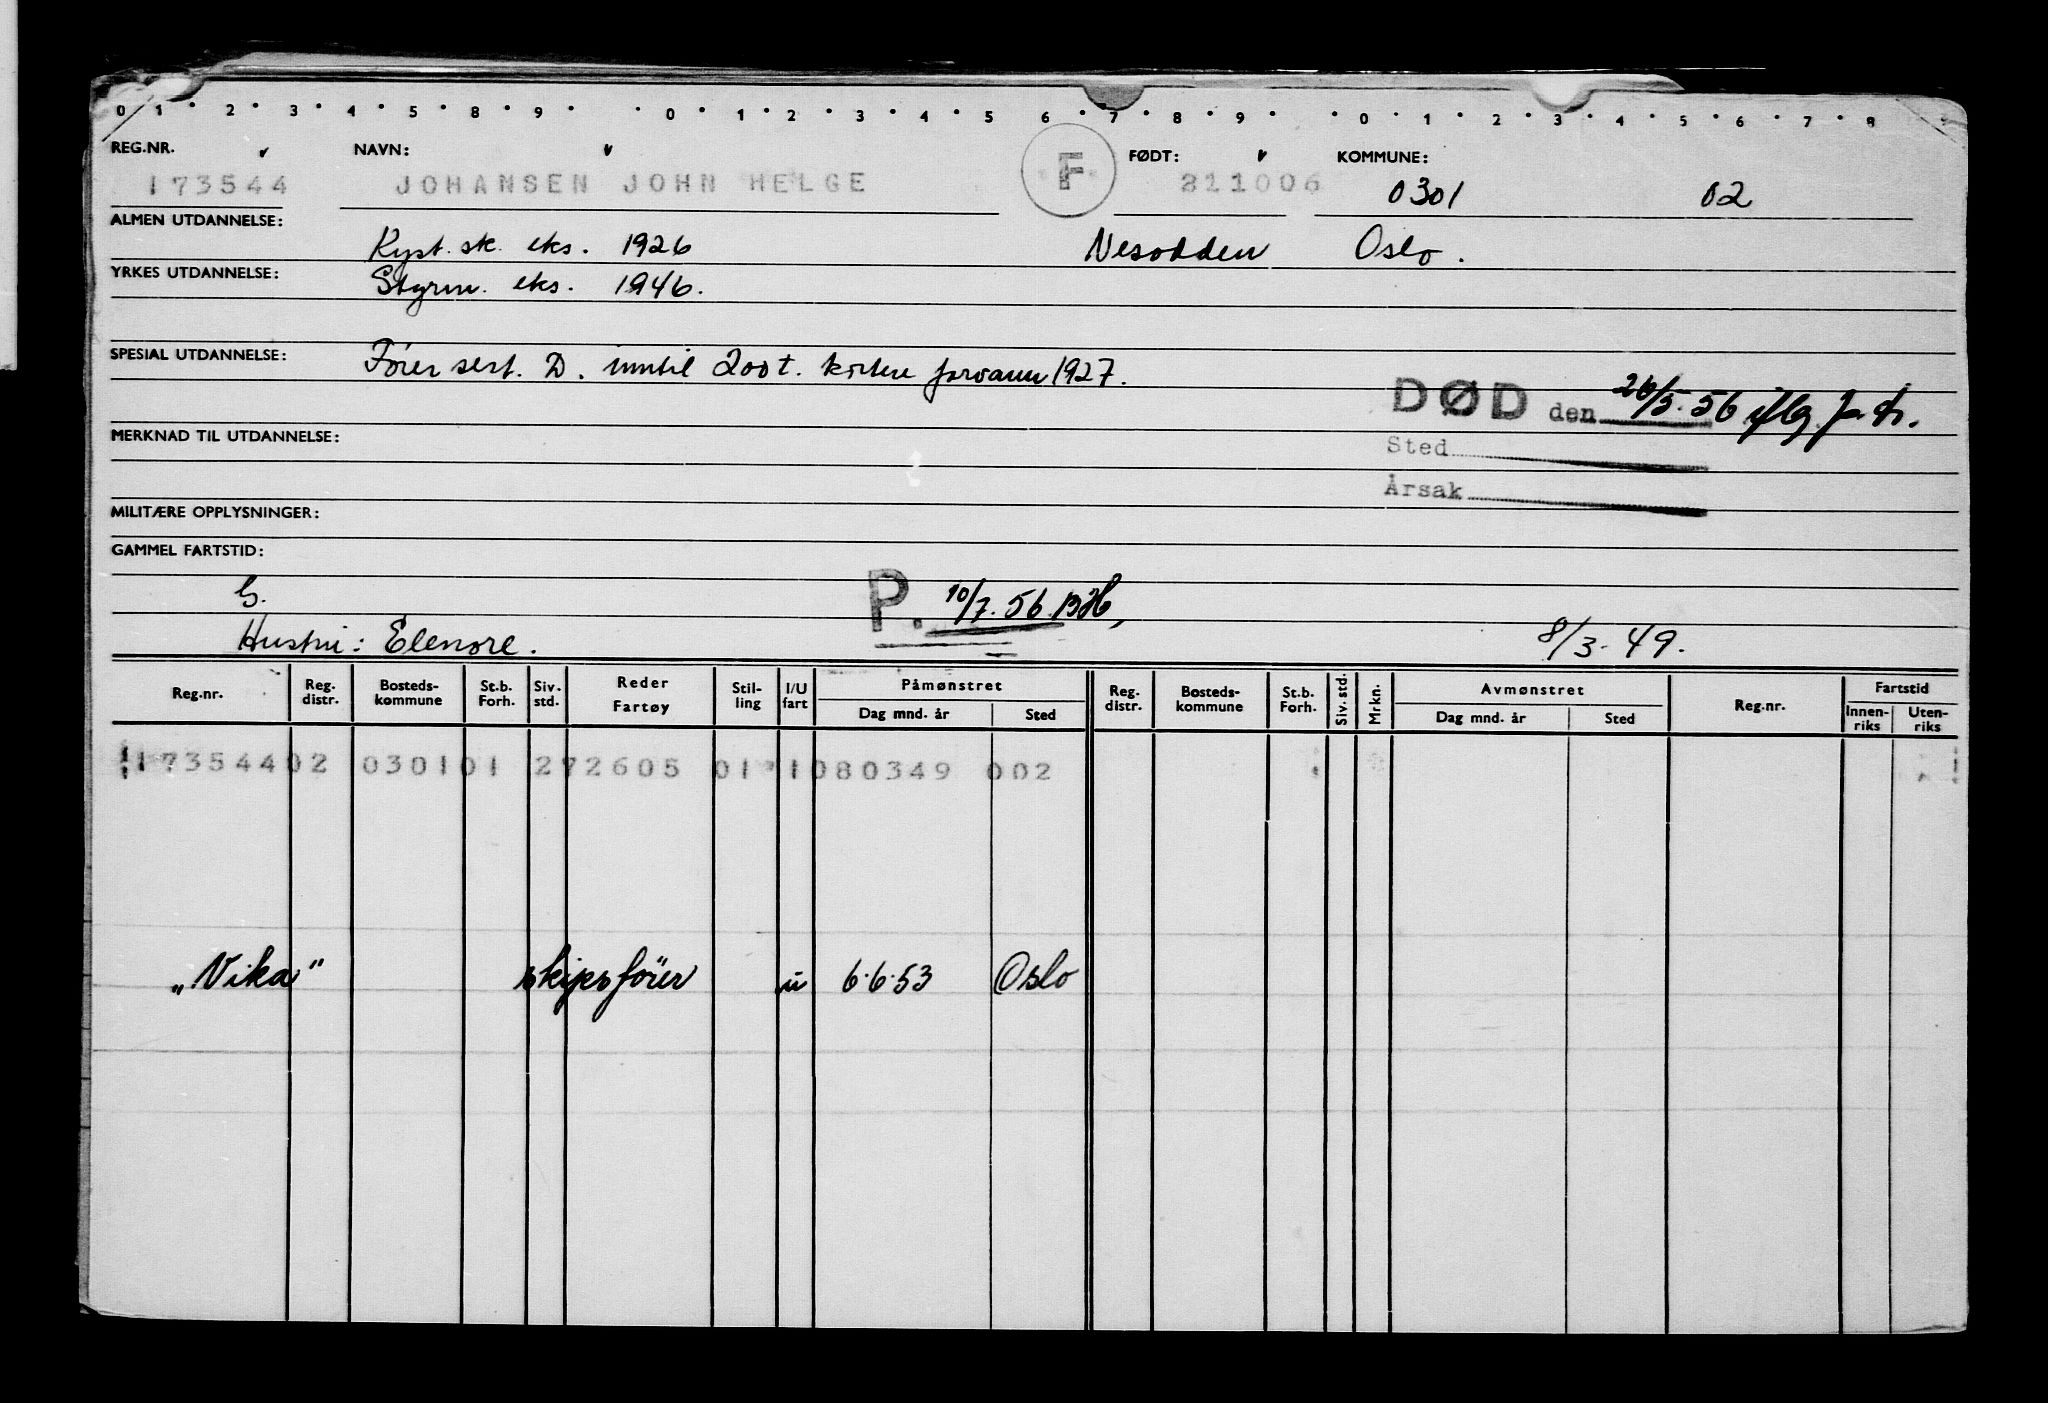 0 1 2 3 4 5 8 9 0 1 2 3 4 5 6 7 8 9 0 1 2 3 4 5 6 7 8
REG.NR. NAVN: F FØDT: KOMMUNE:
173544 JOHANSEN JOHN HELGE 211006 0301 02
ALMEN UTDANNELSE: Kyst. sk. eks. 1926 Nesodden Oslo.
YRKES UTDANNELSE: Styrm. eks. 1946.
SPESIAL UTDANNELSE: Förer sert. D. inntil 200 t. kortere farvann 1927.
DØD den 26/5. 56 iflg.
MERKNAD TIL UTDANNELSE: Sted
Årsak
MILITÆRE OPPLYSNINGER:
GAMMEL FARTSTID:
G. P. 10/7. 56.
Hustru: Elenore. 8/3. 49.
Reg.nr. Reg. distr. Bosteds-kommune St.b. Forh. Siv. std. Reder Fartøy Stil-ling I/U fart Påmønstret Dag mnd. år Sted Reg. distr. Bosteds-kommune St.b. Forh. Siv. std. Mrkn. Avmønstret Dag mnd. år Sted Reg.nr. Fartstid Innen-riks Uten-riks
17354402 030101 272605 01 1080349 002
„Vika" skipsförer u 6.6.53 Oslo